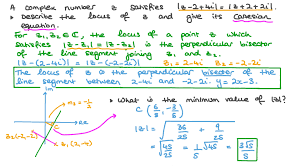 A complex number z satisfies |z-2+4i| = |z+2+2i|.
• describe the locus of z and give its Cartesian
Equation.
For z₁, z₂ ∈ ℂ, the locus of a point z which
satisfies |z-z₁| = |z-z₂| is the perpendicular bisector
of the line segment joining z₁ and z₂.
|z-(2-4i)| = |z-(-2-2i)| z₁=2-4i z₂=-2-2i
The locus of z is the perpendicular bisector of the
line segment between 2-4i and -2-2i. y=2x-3.
Im
• What is the minimum value of |z|?
C (6/5, -3/5)
|z| = √(36/25 + 9/25)
= √(45/25) = 1/5 √45 = 3√5/5
Re
C
z₂(-2,-2)
z₁(2,-4)